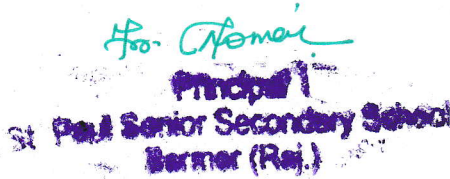 Principal
St. Paul Senior Secondary School
Barmer (Raj.)